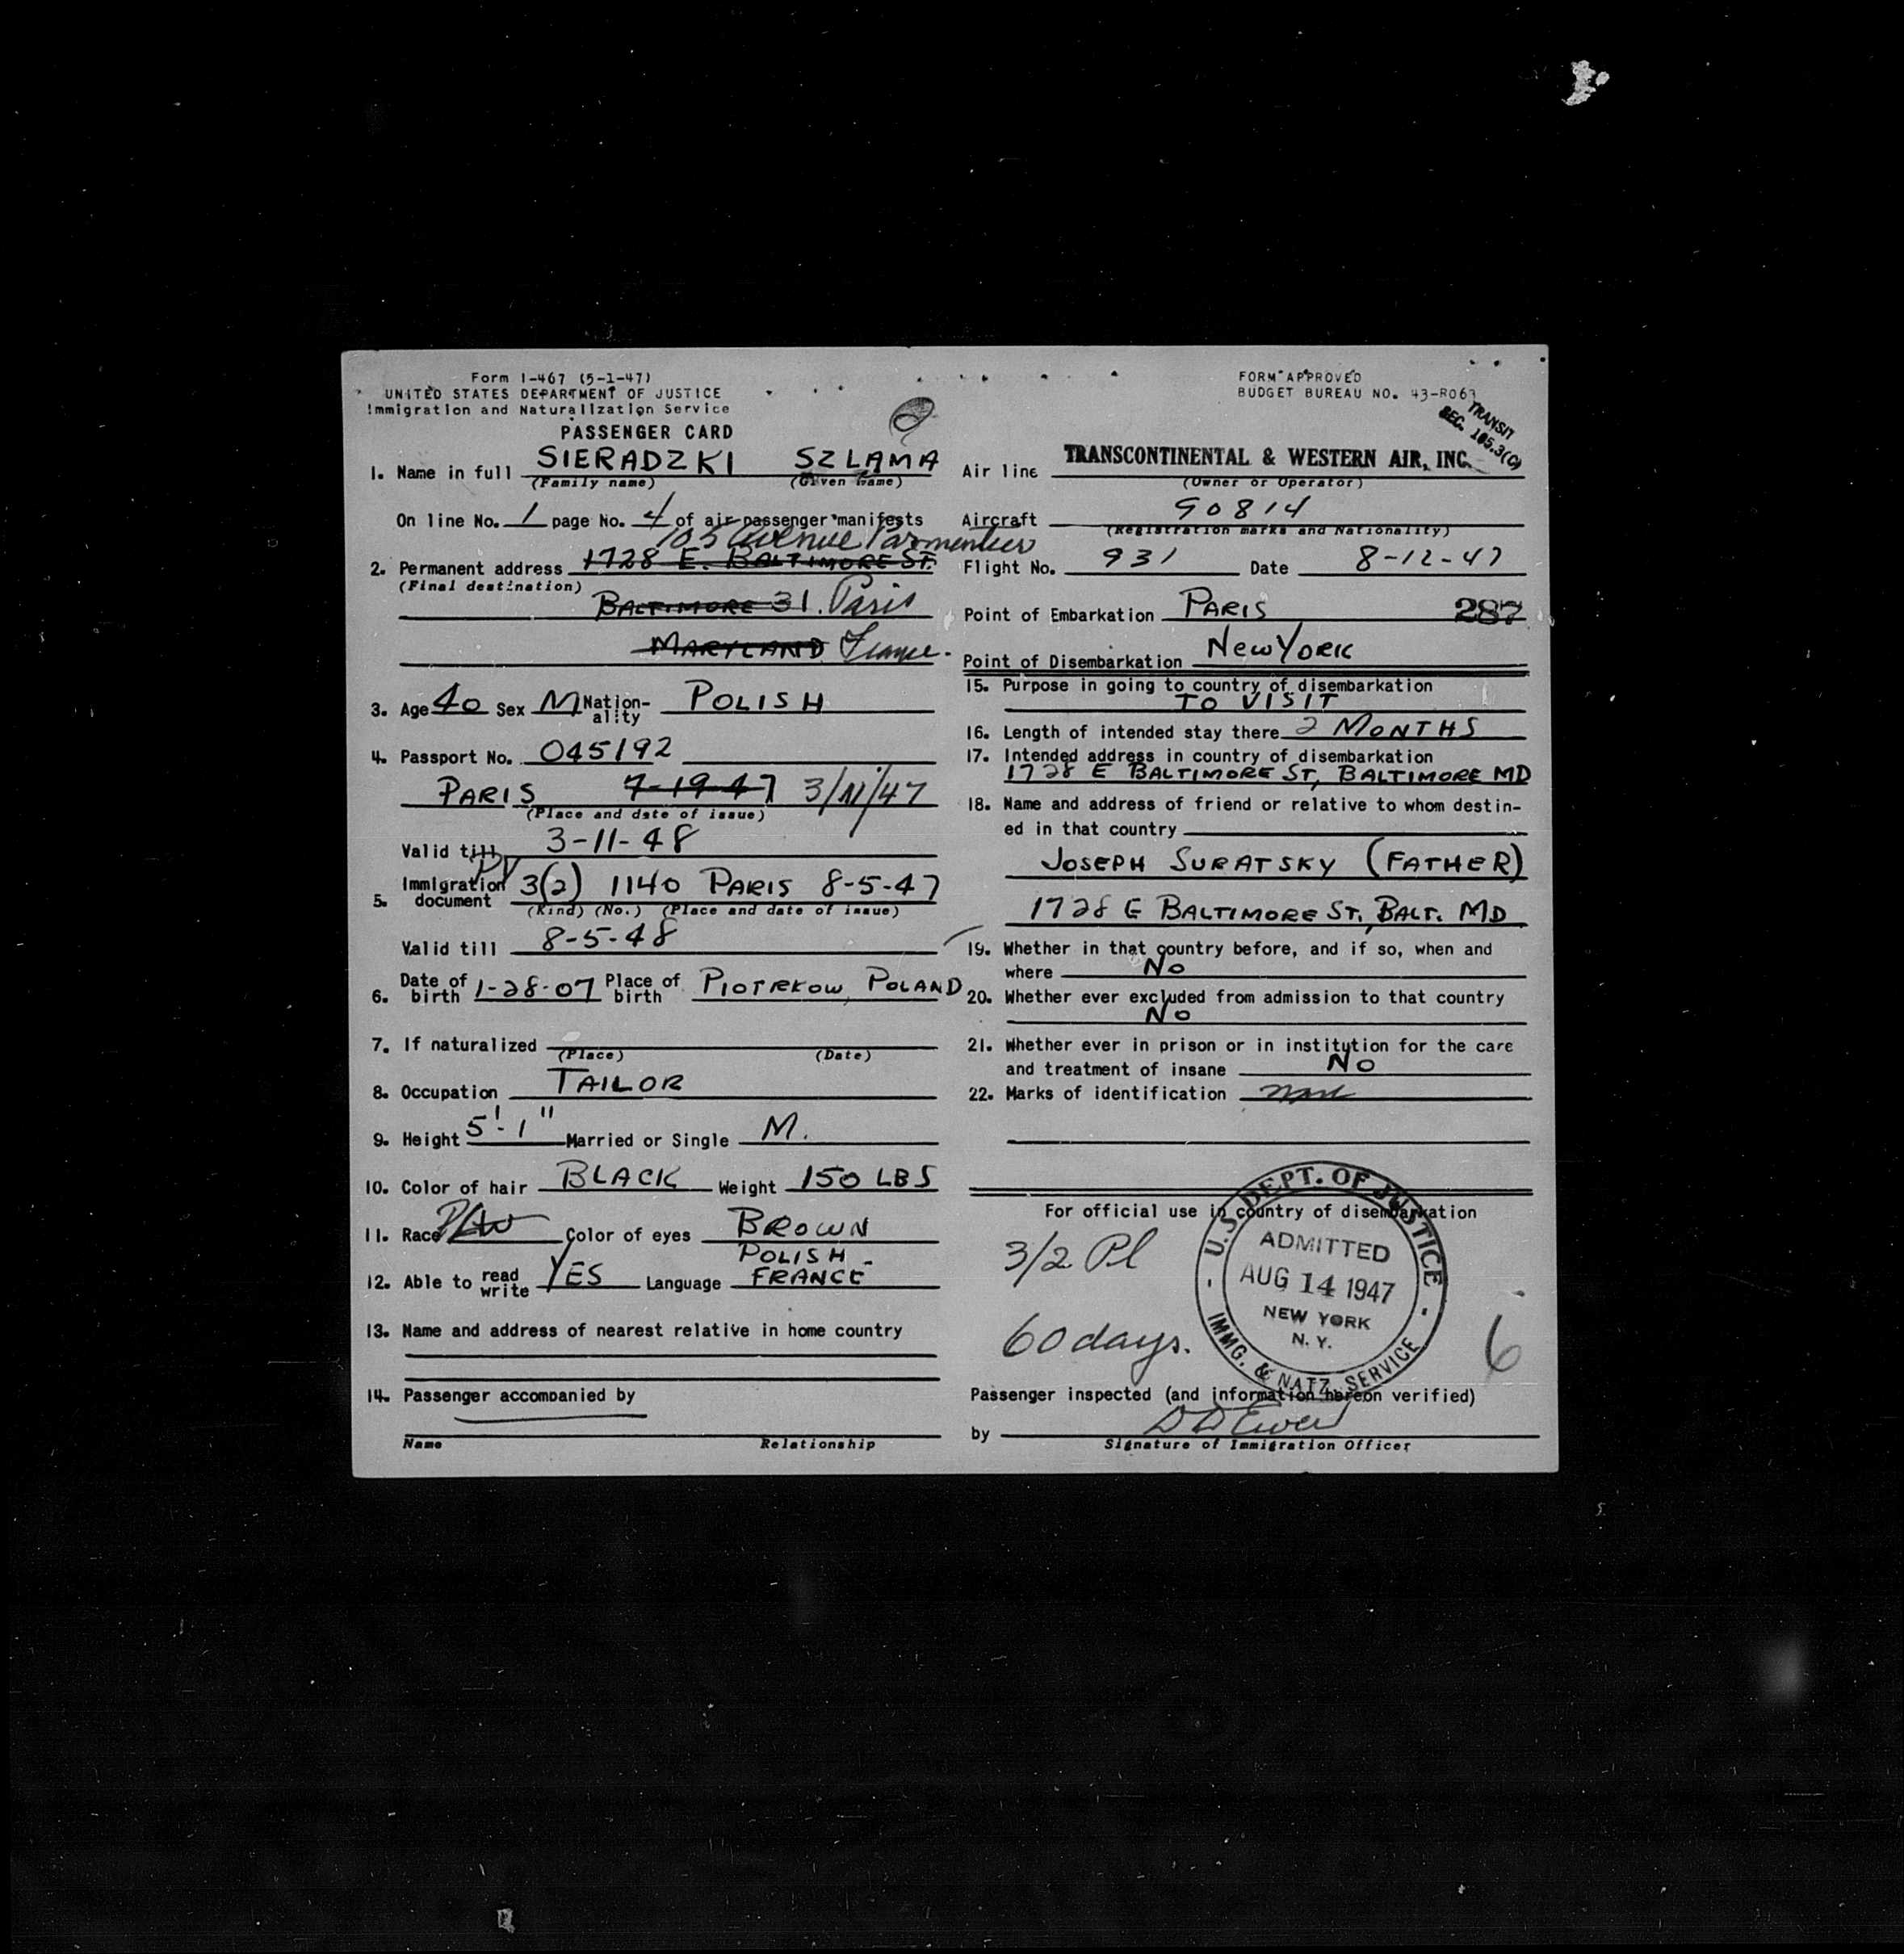 Form I-467 (5-1-47)
UNITED STATES DEPARTMENT OF JUSTICE
Immigration and Naturalization Service
PASSENGER CARD
1. Name in full SIERADZKI SZLAMA
(Family name) (Given name)
On line No. 1 page No. 4 of air passenger manifests
105 Avenue Parmentier
2. Permanent address 1728 E. BALTIMORE ST.
(Final destination)
BALTIMORE 31. Paris
MARYLAND France.
3. Age 40 Sex M Nation-ality POLISH
4. Passport No. 045192
PARIS 7-19-47 3/11/47
(Place and date of issue)
Valid till 3-11-48
PV
5. Immigration document 3(2) 1140 PARIS 8-5-47
(Kind) (No.) (Place and date of issue)
Valid till 8-5-48
6. Date of birth 1-28-07 Place of birth PIOTRKOW, POLAND
7. If naturalized
(Place) (Date)
8. Occupation TAILOR
9. Height 5'-1" Married or Single M.
10. Color of hair BLACK Weight 150 LBS
11. Race Color of eyes BROWN
12. Able to read write YES Language POLISH - FRANCE
13. Name and address of nearest relative in home country
14. Passenger accompanied by
Name Relationship
FORM APPROVED
BUDGET BUREAU NO. 43-R063
TRANSIT
SEC. 105.3(C)
Air line TRANSCONTINENTAL & WESTERN AIR, INC.
(Owner or Operator)
Aircraft 90814
(Registration marks and Nationality)
Flight No. 931 Date 8-12-47
Point of Embarkation PARIS 287
Point of Disembarkation NEW YORK
15. Purpose in going to country of disembarkation
TO VISIT
16. Length of intended stay there 2 MONTHS
17. Intended address in country of disembarkation
1728 E BALTIMORE ST, BALTIMORE MD
18. Name and address of friend or relative to whom destin-
ed in that country
JOSEPH SURATSKY (FATHER)
1728 E BALTIMORE ST, BALT. MD
19. Whether in that country before, and if so, when and
where NO
20. Whether ever excluded from admission to that country
NO
21. Whether ever in prison or in institution for the care
and treatment of insane NO
22. Marks of identification none
For official use in country of disembarkation
3/2 Pl
60 days.
U.S. DEPT. OF JUSTICE
ADMITTED
AUG 14 1947
NEW YORK
N.Y.
IMMG. & NATZ. SERVICE
6
Passenger inspected (and information hereon verified)
by
Signature of Immigration Officer